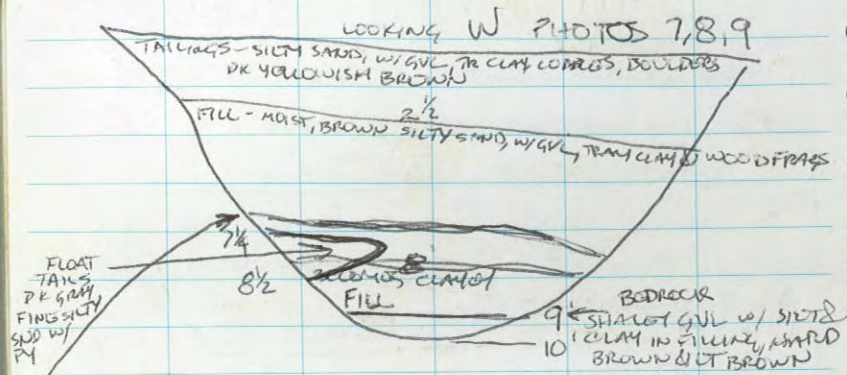 LOOKING W PHOTOS 7,8,9
TAILINGS - SILTY SAND, W/GVL, TR CLAY COBBLES, BOULDERS
DK YELLOWISH BROWN
2 1/2
FILL - MOIST, BROWN SILTY SAND, W/GVL, TRACE CLAY & WOOD FRAGS
7 1/4
8
8 1/2
BECOMES CLAYEY
FILL
FLOAT
TAILS
DK GRAY
FINE SILTY
SND W/
PY
9'
10'
BEDROCK
SHALEY GVL W/ SILT &
CLAY IN FILLING, HARD
BROWN & LT BROWN